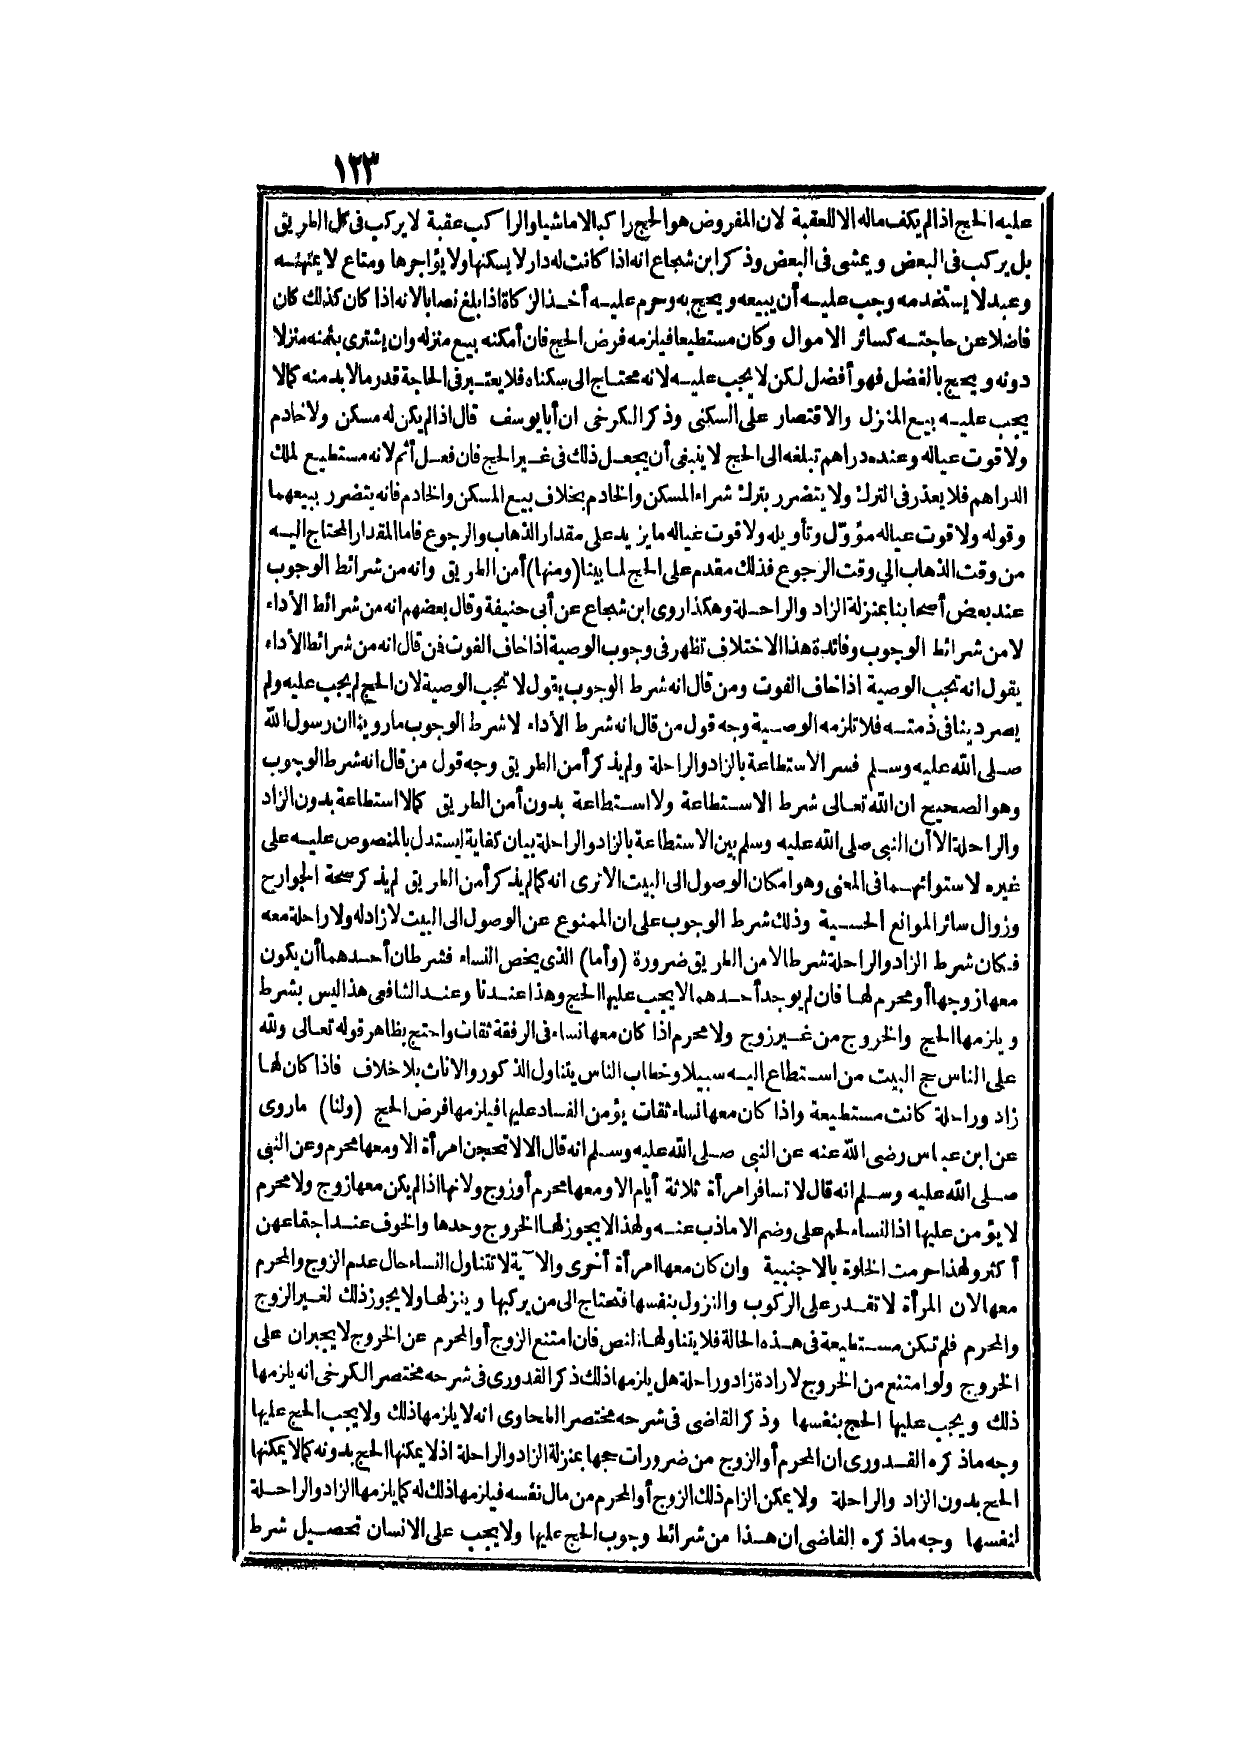 ١٢٣
عليه الحج اذا لم يكف ماله الا للعقبة لان المفروض هو الحج راكبا لا ماشيا والراكب عقبة لا يركب في كل الطريق
بل يركب في البعض ويمشى في البعض وذكر ابن شجاع انه اذا كانت له دار لا يسكنها ولا يؤاجرها ومتاع لا يمتهنه
وعبد لا يستخدمه وجب عليه أن يبيعه ويحج به وحرم عليه أخذ الزكاة اذا بلغ نصابا لانه اذا كان كذلك كان
فاضلا عن حاجته كسائر الاموال وكان مستطيعا فيلزمه فرض الحج فان أمكنه بيع منزله وان يشترى بثمنه منزلا
دونه ويحج بالفضل فهو أفضل لكن لا يجب عليه لانه محتاج الى سكناه فلا يعتبر في الحاجة قدر ما لا بد منه كما لا
يجب عليه بيع المنزل والاقتصار على السكنى وذكر الكرخى ان أبا يوسف قال اذا لم يكن له مسكن ولا خادم
ولا قوت عياله وعنده دراهم تبلغه الى الحج لا ينبغى أن يجعل ذلك في غير الحج فان فعل أثم لانه مستطيع لملك
الدراهم فلا يعذر في الترك ولا يتضرر بترك شراء المسكن والخادم بخلاف بيع المسكن والخادم فانه يتضرر ببيعهما
وقوله ولا قوت عياله مؤوّل وتأويله ولا قوت عياله ما يزيد على مقدار الذهاب والرجوع فاما المقدار المحتاج اليه
من وقت الذهاب الى وقت الرجوع فذلك مقدم على الحج لما بينا (ومنها) أمن الطريق وانه من شرائط الوجوب
عند بعض أصحابنا بمنزلة الزاد والراحلة وهكذا روى ابن شجاع عن أبى حنيفة وقال بعضهم انه من شرائط الأداء
لا من شرائط الوجوب وفائدة هذا الاختلاف تظهر في وجوب الوصية اذا خاف الفوت فمن قال انه من شرائط الأداء
يقول انه تجب الوصية اذا خاف الفوت ومن قال انه شرط الوجوب يقول لا تجب الوصية لان الحج لم يجب عليه ولم
يصر دينا في ذمته فلا تلزمه الوصية وجه قول من قال انه شرط الأداء لا شرط الوجوب ما روينا ان رسول الله
صلى الله عليه وسلم فسر الاستطاعة بالزاد والراحلة ولم يذكر أمن الطريق وجه قول من قال انه شرط الوجوب
وهو الصحيح ان الله تعالى شرط الاستطاعة ولا استطاعة بدون أمن الطريق كما لا استطاعة بدون الزاد
والراحلة الا أن النبى صلى الله عليه وسلم بين الاستطاعة بالزاد والراحلة بيان كفاية ليستدل بالمنصوص عليه على
غيره لاستوائهما في المعنى وهو امكان الوصول الى البيت الا ترى انه كما لم يذكر أمن الطريق لم يذكر صحة الجوارح
وزوال سائر الموانع الحسية وذلك شرط الوجوب على ان الممنوع عن الوصول الى البيت لا زاد له ولا راحلة معه
فكان شرط الزاد والراحلة شرطا لامن الطريق ضرورة (وأما) الذى يخص النساء فشرطان أحدهما أن يكون
معها زوجها أو محرم لها فان لم يوجد أحدهما لا يجب عليها الحج وهذا عندنا وعند الشافعى هذا ليس بشرط
ويلزمها الحج والخروج من غير زوج ولا محرم اذا كان معها نساء في الرفقة ثقات واحتج بظاهر قوله تعالى ولله
على الناس حج البيت من استطاع اليه سبيلا وخطاب الناس يتناول الذكور والاناث بلا خلاف فاذا كان لها
زاد وراحلة كانت مستطيعة واذا كان معها نساء ثقات يؤمن الفساد عليها فيلزمها فرض الحج (ولنا) ما روى
عن ابن عباس رضى الله عنه عن النبى صلى الله عليه وسلم انه قال الا لا تحجن امرأة الا ومعها محرم وعن النبى
صلى الله عليه وسلم انه قال لا تسافر امرأة ثلاثة أيام الا ومعها محرم أو زوج ولانها اذا لم يكن معها زوج ولا محرم
لا يؤمن عليها اذ النساء لحم على وضم الا ما ذب عنه ولهذا لا يجوز لها الخروج وحدها والخوف عند اجتماعهن
أكثر ولهذا حرمت الخلوة بالاجنبية وان كان معها امرأة أخرى والآية لا تتناول النساء حال عدم الزوج والمحرم
معها لان المرأة لا تقدر على الركوب والنزول بنفسها فتحتاج الى من يركبها وينزلها ولا يجوز ذلك لغير الزوج
والمحرم فلم تكن مستطيعة في هذه الحالة فلا يتناولها النص فان امتنع الزوج أو المحرم عن الخروج لا يجبران على
الخروج ولو امتنع من الخروج لارادة زاد وراحلة هل يلزمها ذلك ذكر القدورى في شرحه مختصر الكرخى انه يلزمها
ذلك ويجب عليها الحج بنفسها وذكر القاضى في شرحه مختصر الطحاوى انه لا يلزمها ذلك ولا يجب الحج عليها
وجه ما ذكره القدورى ان المحرم أو الزوج من ضرورات حجها بمنزلة الزاد والراحلة اذ لا يمكنها الحج بدونه كما لا يمكنها
الحج بدون الزاد والراحلة ولا يمكن الزام ذلك الزوج أو المحرم من مال نفسه فيلزمها ذلك له كما يلزمها الزاد والراحلة
لنفسها وجه ما ذكره القاضى ان هذا من شرائط وجوب الحج عليها ولا يجب على الانسان تحصيل شرط